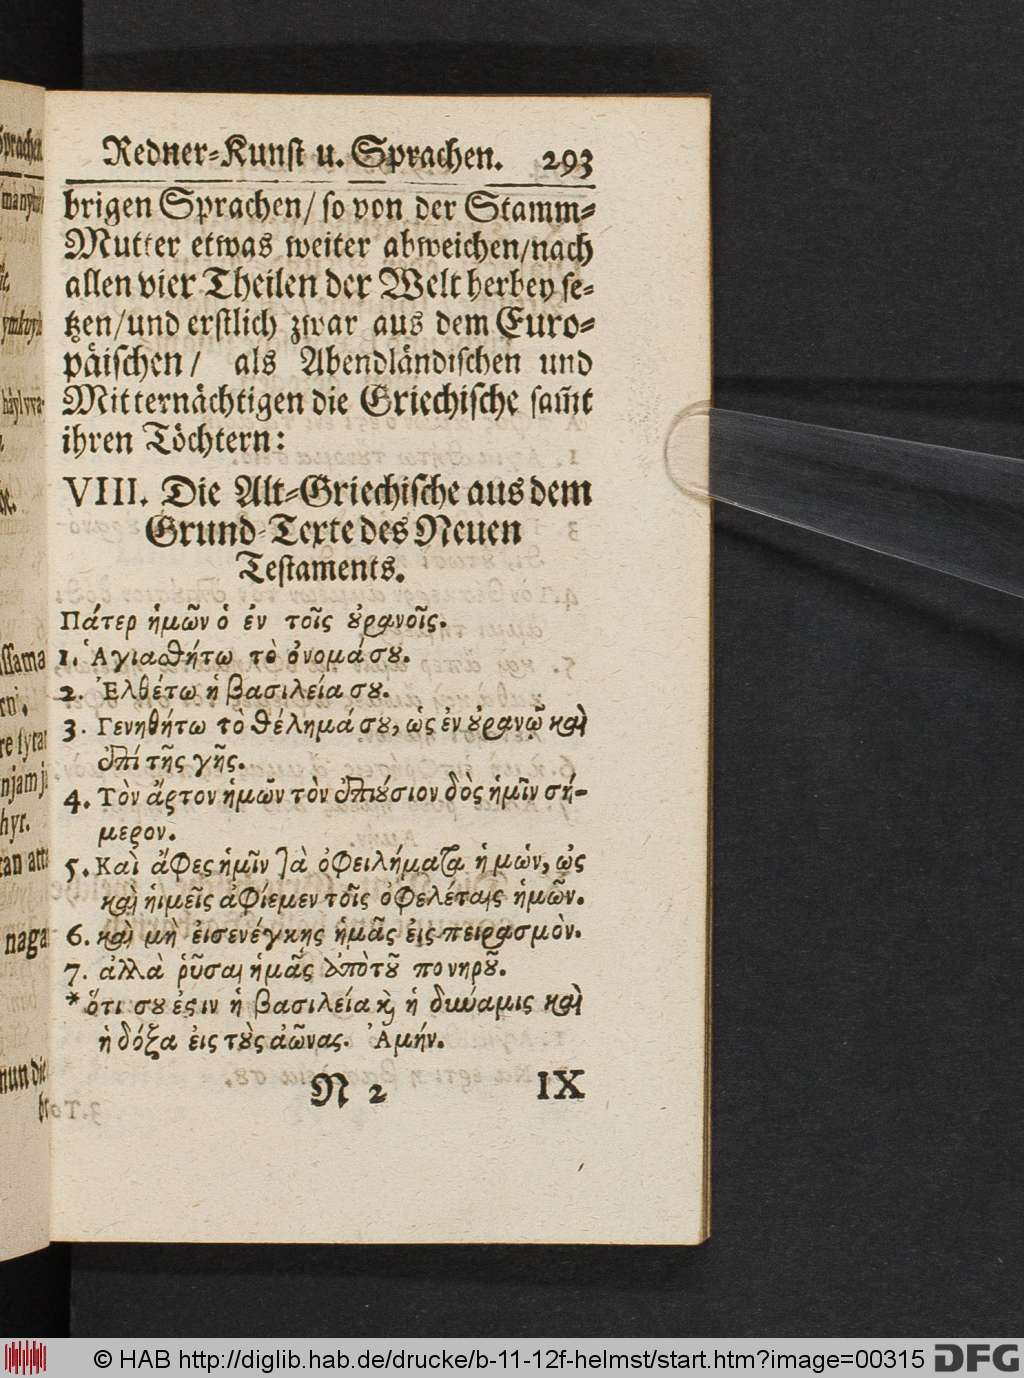 Redner-Kunst u. Sprachen. 293
brigen Sprachen/ so von der Stamm-
Mutter etwas weiter abweichen/nach
allen vier Theilen der Welt herbey se-
tzen/und erstlich zwar aus dem Euro-
päischen/ als Abendländischen und
Mitternächtigen die Griechische sam̃t
ihren Töchtern:
VIII. Die Alt-Griechische aus dem
Grund-Texte des Neuen
Testaments.
Πάτερ ἡμῶν ὁ ἐν τοῖς ȣ̓ρανοῖς.
1. Ἁγιασθήτω τὸ ὀνομά σȣ.
2. Ἐλθέτω ἡ βασιλεία σȣ.
3. Γενηθήτω τὸ θέλημά σȣ, ὡς ἐν ȣ̓ρανῷ καὶ
ἐπὶ τῆς γῆς.
4. Τὸν ἄρτον ἡμῶν τὸν ἐπιȣ́σιον δὸς ἡμῖν σή-
μερον.
5. Καὶ ἄφες ἡμῖν τὰ ὀφειλήματα ἡμών, ὡς
καὶ ἡιμεῖς ἀφίεμεν τοῖς ὀφελέταις ἡμῶν.
6. καὶ μὴ ἐισενέγκης ἡμᾶς ἐις πειρασμὸν.
7. ἀλλὰ ῥῦσαι ἡμᾶς ἀπὸ τȣ͂ πονηρȣ͂.
* ὅτι σȣ ἐϛιν ἡ βασιλεία ϗ ἡ δύναμις καὶ
ἡ δόξα ἐις τȣ̀ς ἀιῶνας. Ἀμήν.
N 2 IX
ssama
naga
nun die
© HAB http://diglib.hab.de/drucke/b-11-12f-helmst/start.htm?image=00315 DFG